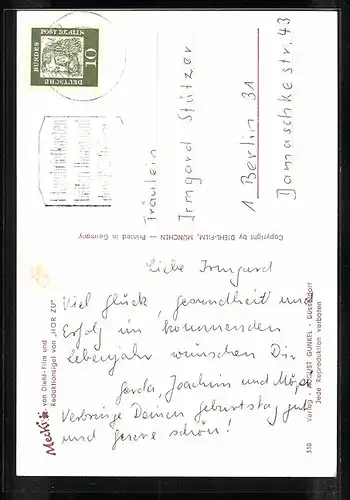 Liebe Irmgard
Viel Glück, Gesundheit und
Erfolg im kommenden
Lebensjahr wünschen Dir
Gerda, Joachim und
Verbringe Deinen Geburtstag gut
und gerne schön!
Fräulein
Irmgard Stützer
1 Berlin 31
Damaschkestr. 43
DEUTSCHE
BUNDES
POST
10
Mecki
von Diehl-Film und
Redaktionsigel von „HÖR ZU"
Copyright by DIEHL-FILM, MÜNCHEN — Printed in Germany
510
Verlag · AUGUST GUNKEL · Düsseldorf
Jede Reproduktion verboten